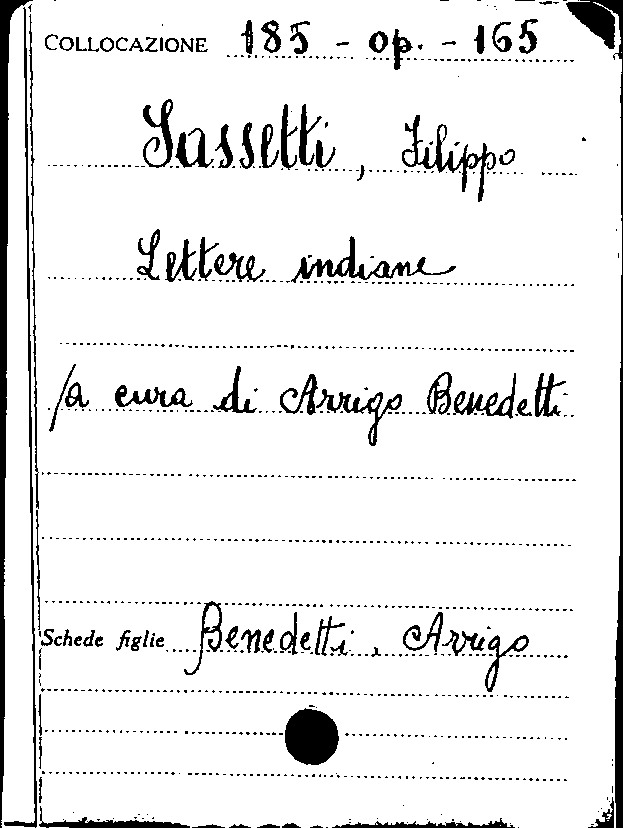 COLLOCAZIONE 185 - op. - 165
Sassetti, Filippo
Lettere indiane
/a cura di Arrigo Benedetti
Schede figlie Benedetti, Arrigo